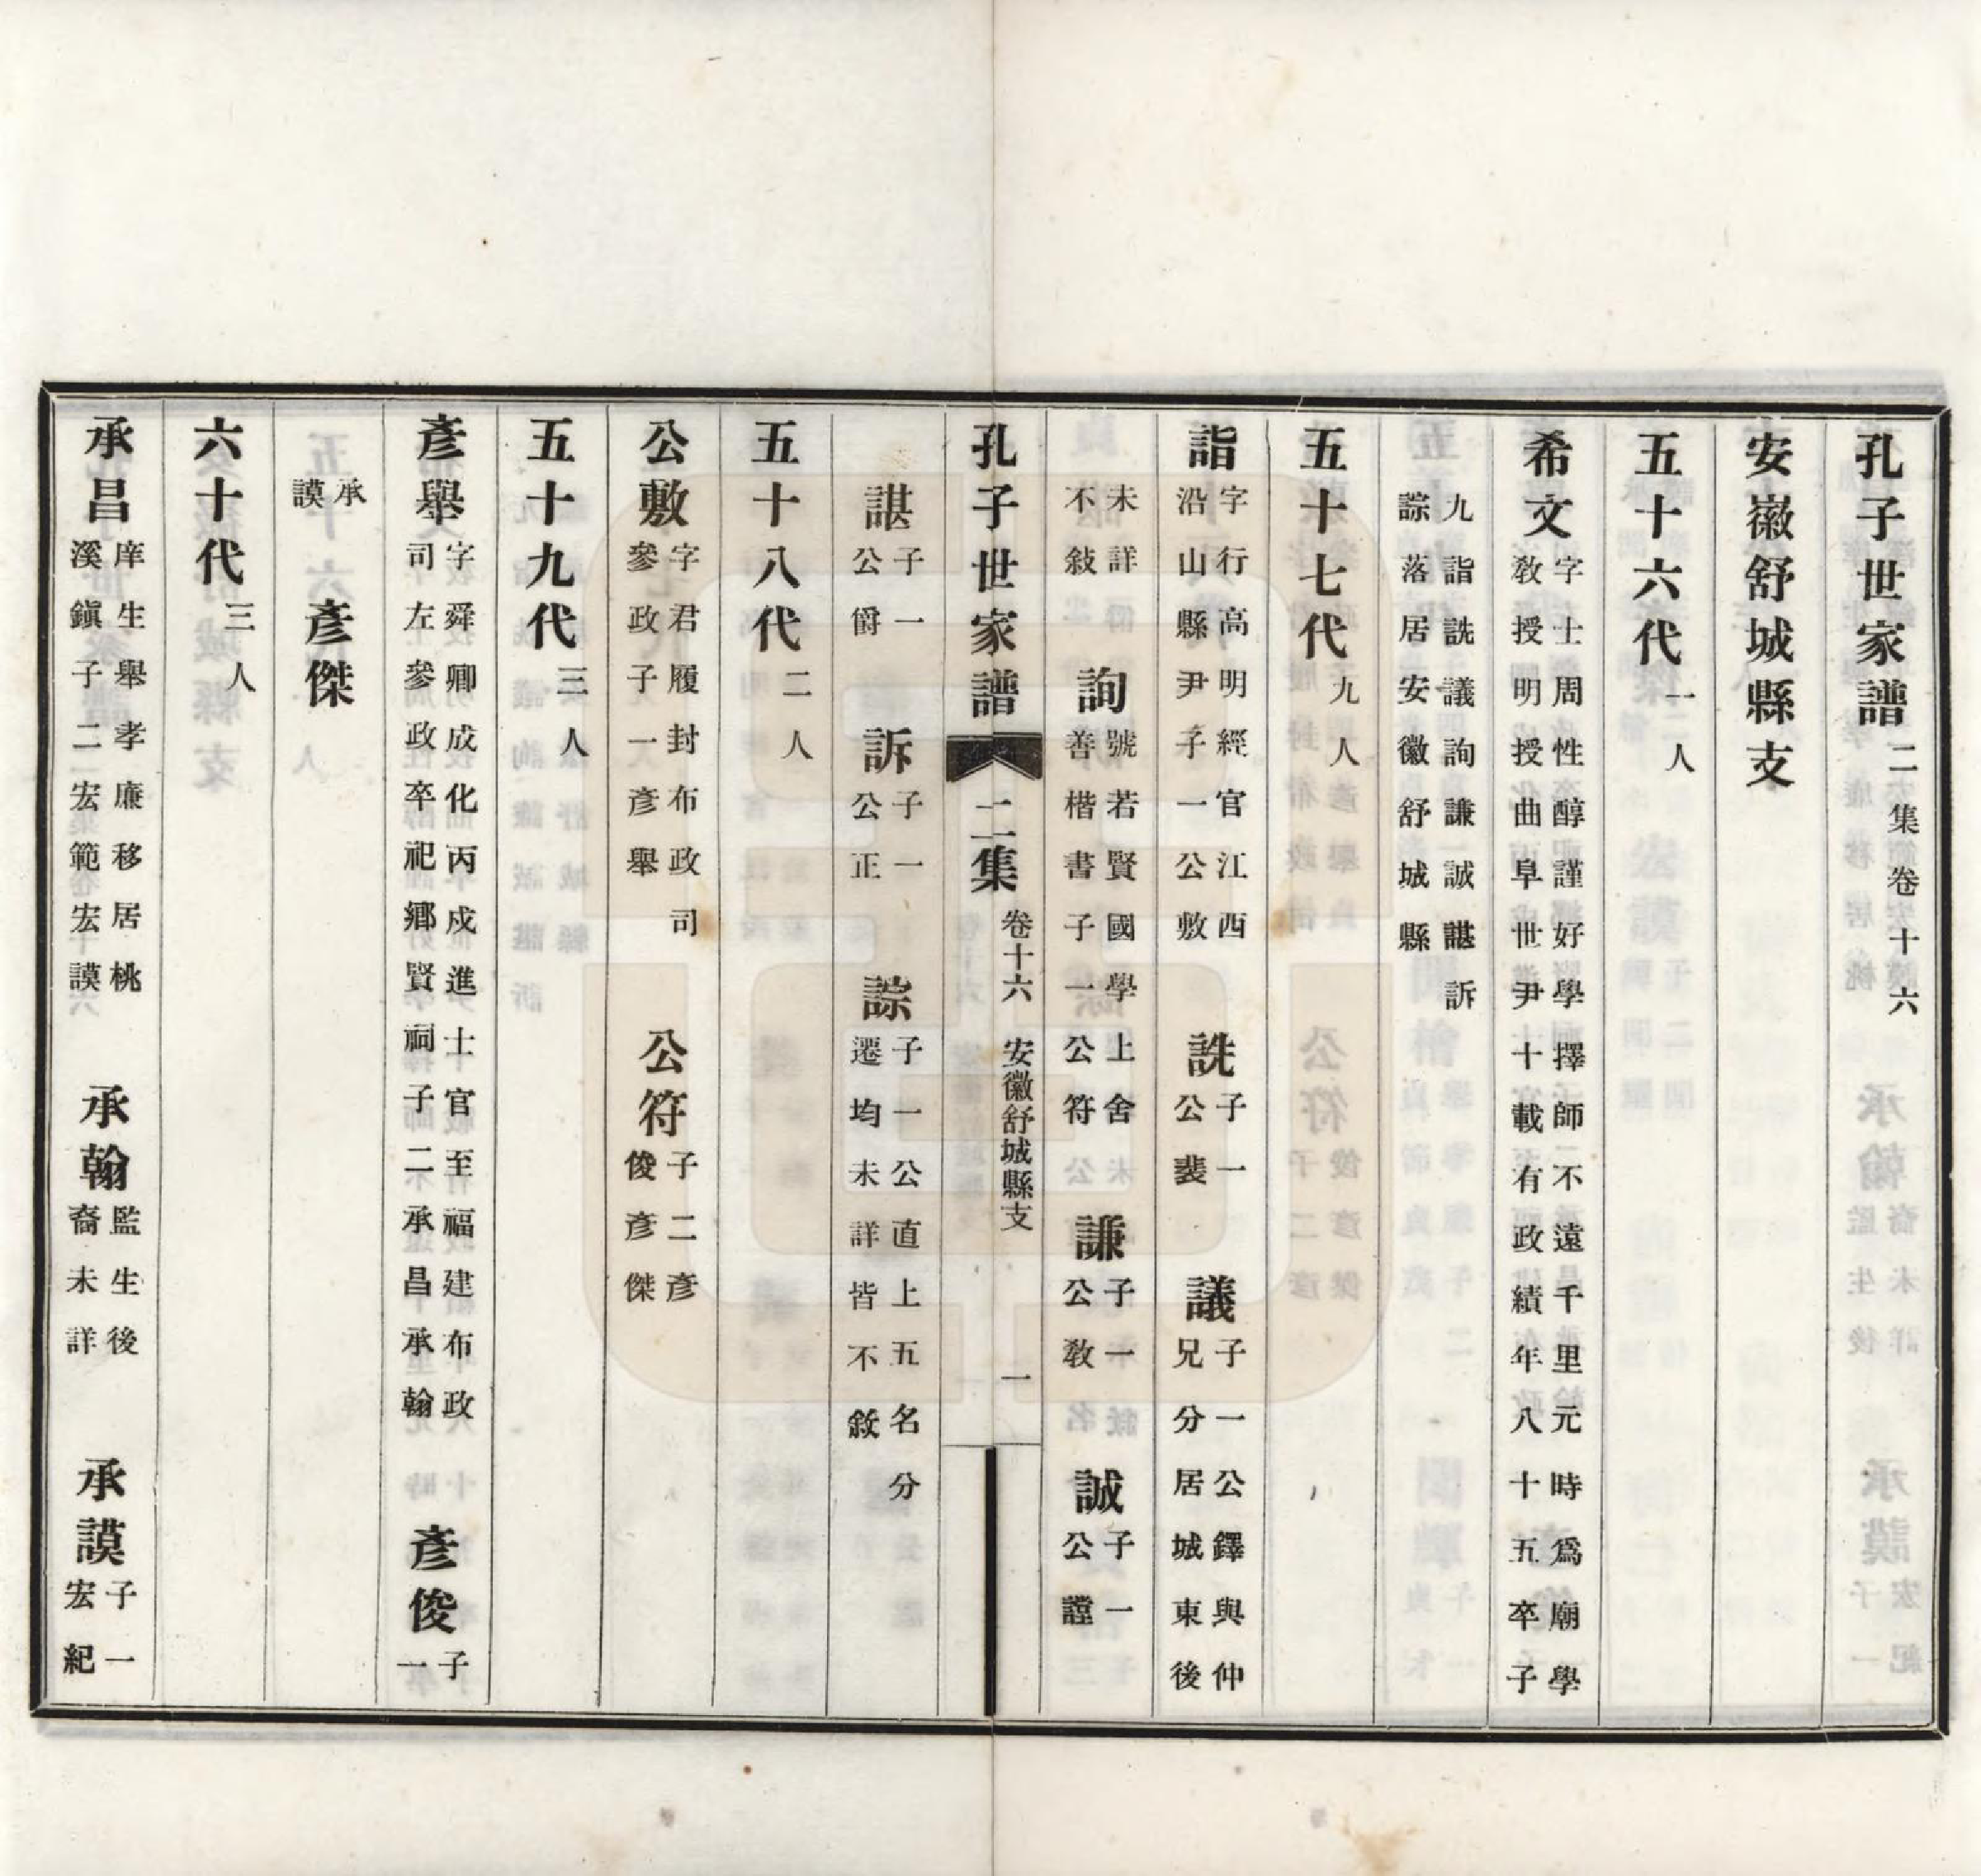 孔子世家譜 二集卷十六
安徽舒城縣支
五十六代 一人
希文 字士周性醇謹好學擇師不遠千里元時爲廟學
教授明授曲阜世尹十載有政績年八十五卒子
九詣詵議詢謙誠諶訴
誴落居安徽舒城縣
五十七代 九人
詣 字行高明經官江西
沿山縣尹子一公敷
詵 子一
公裴
議 子一公鐸與仲
兄分居城東後
未詳
不敍
詢 號若賢國學上舍
善楷書子一公符
謙 子一
公教
誠 子一
公讜
孔子世家譜 二集 卷十六 安徽舒城縣支 一
諶 子一
公爵
訴 子一
公正
誴 子一公直上五名分
遷均未詳皆不敘
五十八代 二人
公敷 字君履封布政司
參政子一彥舉
公符 子二彥
俊彥傑
五十九代 三人
彥舉 字舜卿成化丙戍進士官至福建布政
司左參政卒祀鄉賢祠子二承昌承翰
彥俊 子一
承
謨
彥傑
六十代 三人
承昌 庠生舉孝廉移居桃
溪鎭子二宏範宏謨
承翰 監生後
裔未詳
承謨 子一
宏紀